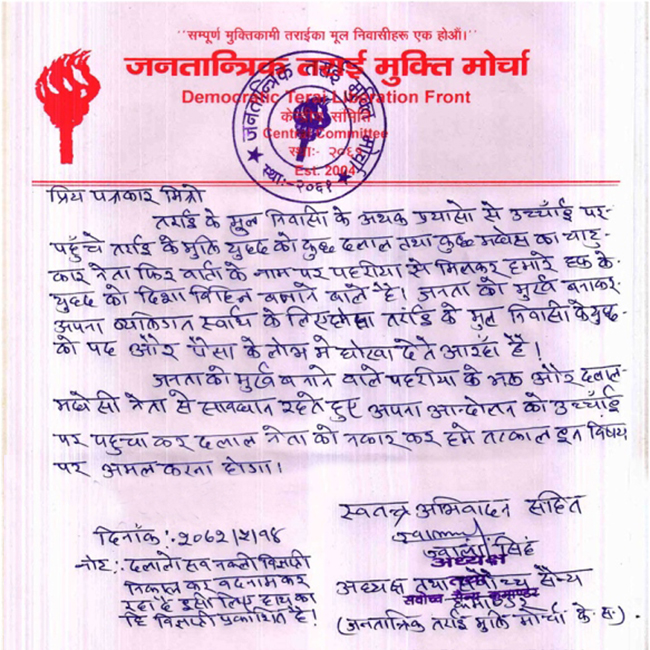 "सम्पूर्ण मुक्तिकामी तराईका मूल निवासीहरू एक होऔं।"
जनतान्त्रिक तराई मुक्ति मोर्चा
Democratic Terai Liberation Front
केन्द्रीय समिति
Central Committee
स्था:- २०६१
Est. 2004
जनतान्त्रिक तराई मुक्ति मोर्चा
स्था:-२०६१
प्रिय पत्रकार मित्रो
तराई के मूल निवासी के अथक प्रयासो से उच्चाँई पर
पहुँचे तराई के मुक्ति युद्द को कुछ दलाल तथा कुछ मधेस का चाटु-
कार नेता फिर वार्ता के नाम पर पहरीया से मिलकर हमारे हक के
युद्द को दिशा विहिन बनाने वाले है। जनता को मुर्ख बनाकर
अपना व्यक्तिगत स्वार्थ के लिए तराई के मुल निवासी के युद्द
को पद और पैसा के लोभ मे धोखा देते आरहा हैं!
जनता को मुर्ख बनाने वाले पहरीया के भक्त और दलाल
मधेसी नेता से सावधान रहते हुए अपना आन्दोलन को उच्चाँई
पर पहुचा कर दलाल नेता को नकार कर हमे तत्काल इन विषय
पर अमल करना होगा।
स्वतन्त्र अभिवादन सहित
ज्वाला सिंह
अध्यक्ष
दिनाँक:
नोट: दलालो सब नक्ली विज्ञप्ती
निकाल कर बदनाम कर
रहा है इसी लिए हाथ का
हि विज्ञप्ती प्रकाशित है!
अध्यक्ष तथा सर्वोच्च सैन्य
तथा
सर्वोच्च सैन्य कमाण्डर
कमाण्डर
(जनतान्त्रिक तराई मुक्ति मोर्चा के.स.)